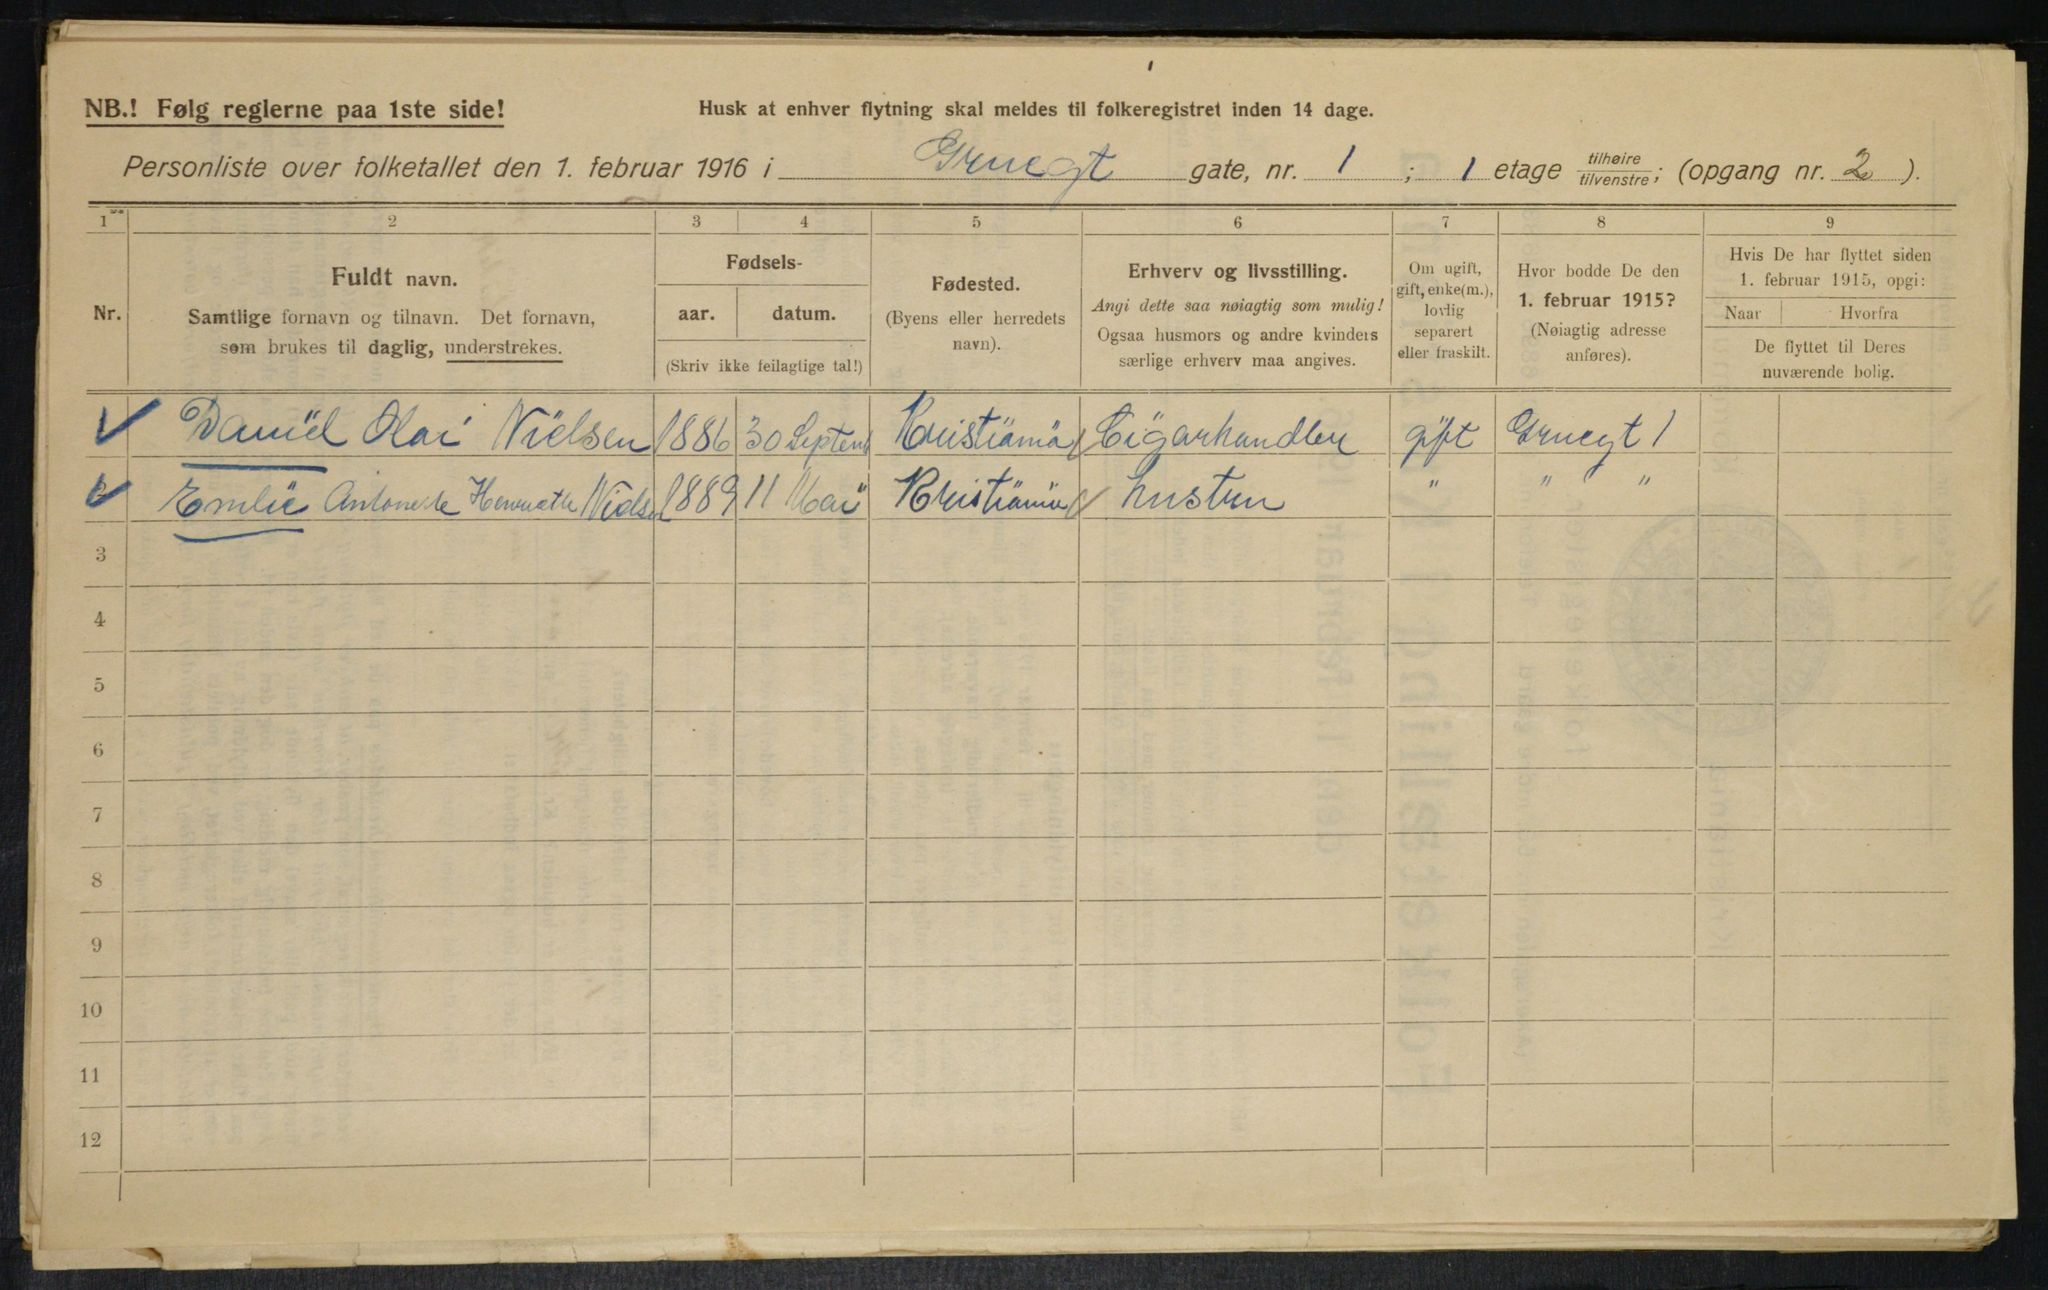 NB.! Følg reglerne paa 1ste side!
Husk at enhver flytning skal meldes til folkeregistret inden 14 dage.
Personliste over folketallet den 1. februar 1916 i Gruegt gate, nr. 1 ; 1 etage tilhøire/tilvenstre; (opgang nr. 2).
1 2 3 4 5 6 7 8 9
Nr.
Fuldt navn.
Samtlige fornavn og tilnavn. Det fornavn,
som brukes til daglig, understrekes.
Fødsels-
aar. datum.
(Skriv ikke feilagtige tal!)
Fødested.
(Byens eller herredets
navn).
Erhverv og livsstilling.
Angi dette saa nøiagtig som mulig!
Ogsaa husmors og andre kvinders
særlige erhverv maa angives.
Om ugift,
gift, enke(m.),
lovlig
separert
eller fraskilt.
Hvor bodde De den
1. februar 1915?
(Nøiagtig adresse
anføres).
Hvis De har flyttet siden
1. februar 1915, opgi:
Naar Hvorfra
De flyttet til Deres
nuværende bolig.
Daniel Olai Nielsen 1886 30 Septemb Kristiania Cigarhandler gift Gruegt 1
Emlie Nielsen 1889 11 Mai Kristiania hustru " " "
3
4
5
6
7
8
9
10
11
12